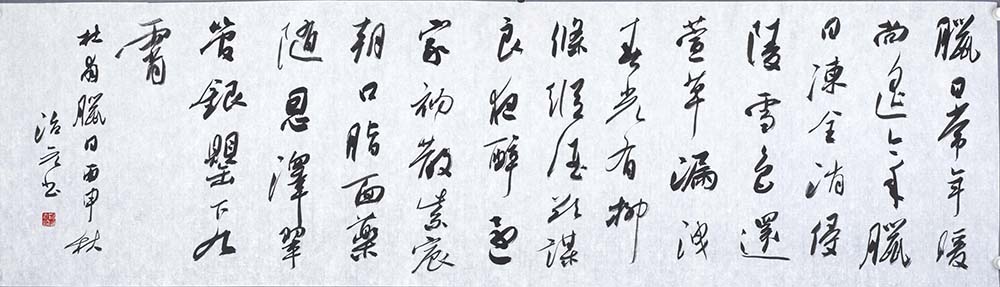 臘日常年暖
尚遥今年臘
日凍全消侵
陵雪色還
萱草漏洩
春光有柳
條縱酒欲謀
良夜醉還
家初散紫宸
朝口脂面藥
随恩澤翠
管銀罌下九
霄
杜甫臘日丙申秋
书